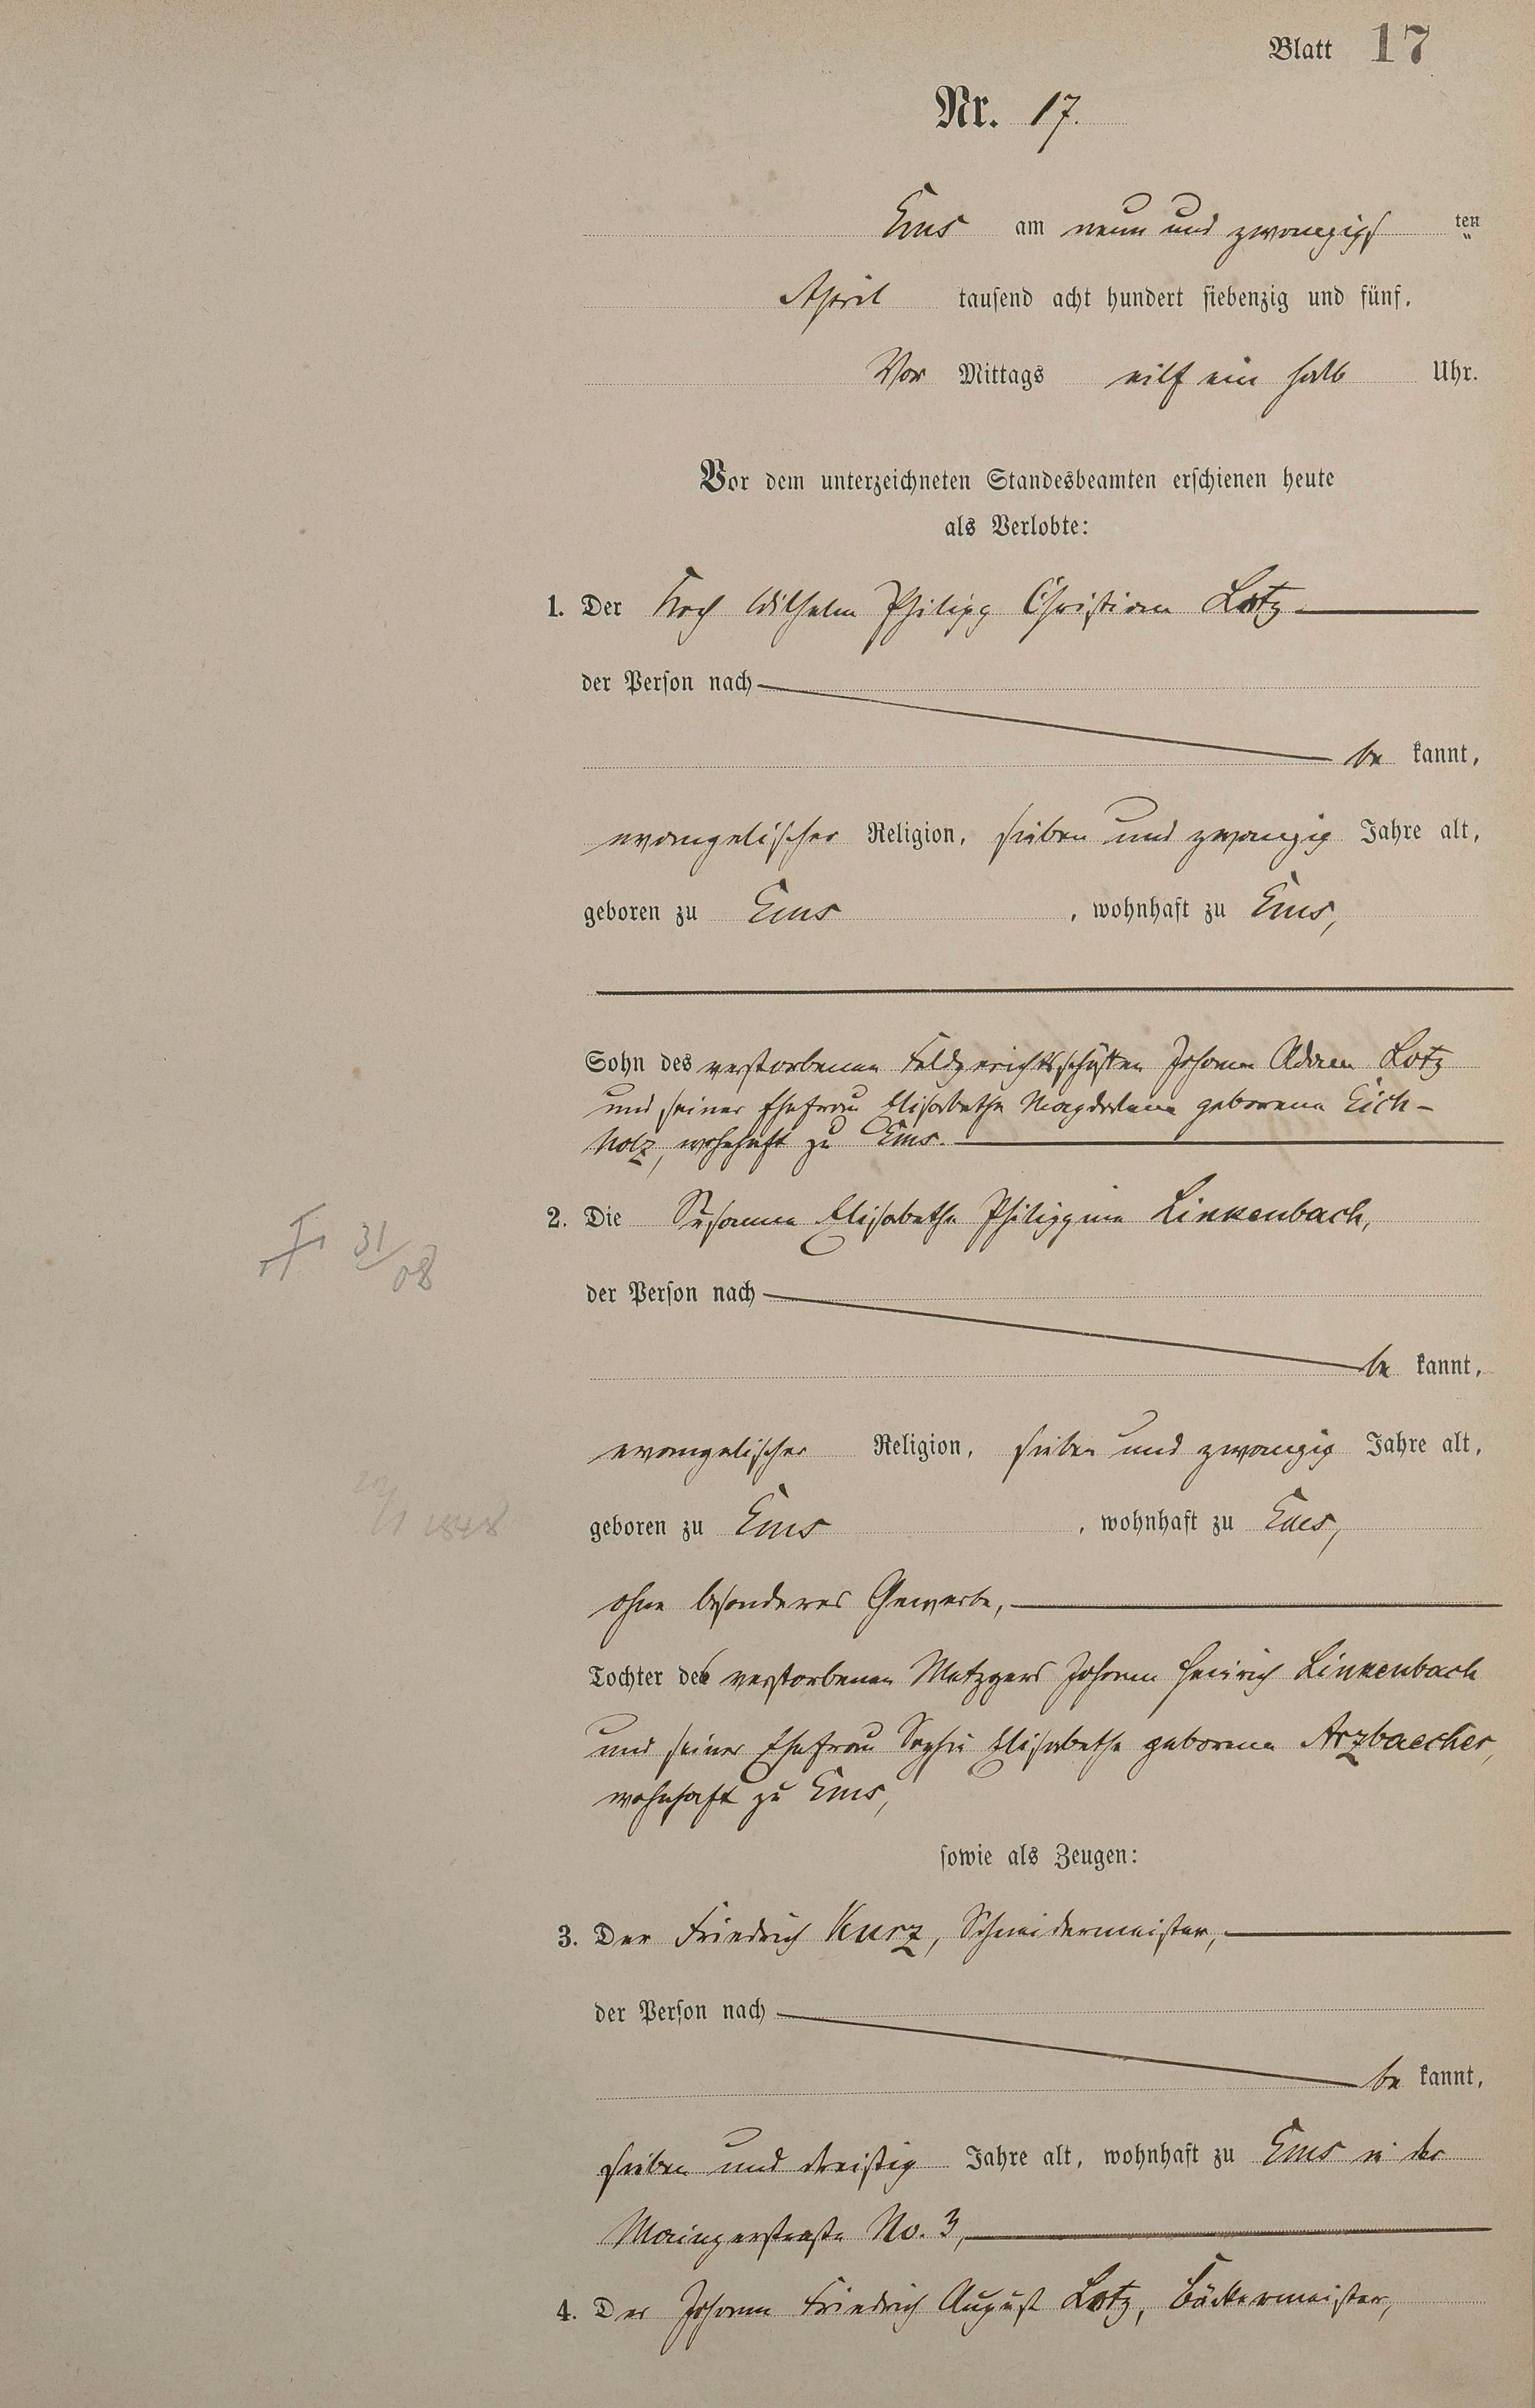 Blatt 17
Nr. 17.
Ems am neun und zwanzigs ten
April tausend acht hundert siebenzig und fünf.
Vor Mittags eilf ein halb Uhr.
Vor dem unterzeichneten Standesbeamten erschienen heute
als Verlobte:
1. Der Koch Wilhelm Philipp Christian Lotz
der Person nach
be kannt,
evangelischer Religion, sieben und zwanzig Jahre alt,
geboren zu Ems , wohnhaft zu Ems,
Sohn des verstorbenen Feldgerichtsschöffen Johann Adam Lotz
und seiner Ehefrau Elisabethe Magdalena geborene Eich-
holz, wohnhaft zu Ems.
2. Die Susanna Elisabethe Philippine Linkenbach,
31/08
der Person nach
be kannt,
evangelischer Religion, sieben und zwanzig Jahre alt,
1848
geboren zu Ems , wohnhaft zu Ems,
ohne besonderes Gewerbe,
Tochter des verstorbenen Metzgers Johann Heinrich Linkenbach
und seiner Ehefrau Sophie Elisabethe geborene Arzbaecher,
wohnhaft zu Ems,
sowie als Zeugen:
3. Der Friedrich Kurz, Schneidermeister,
der Person nach
be kannt,
sieben und dreißig Jahre alt, wohnhaft zu Ems in der
Mainzerstraße No. 3,
4. Der Johann Friedrich August Lotz, Bäckermeister,